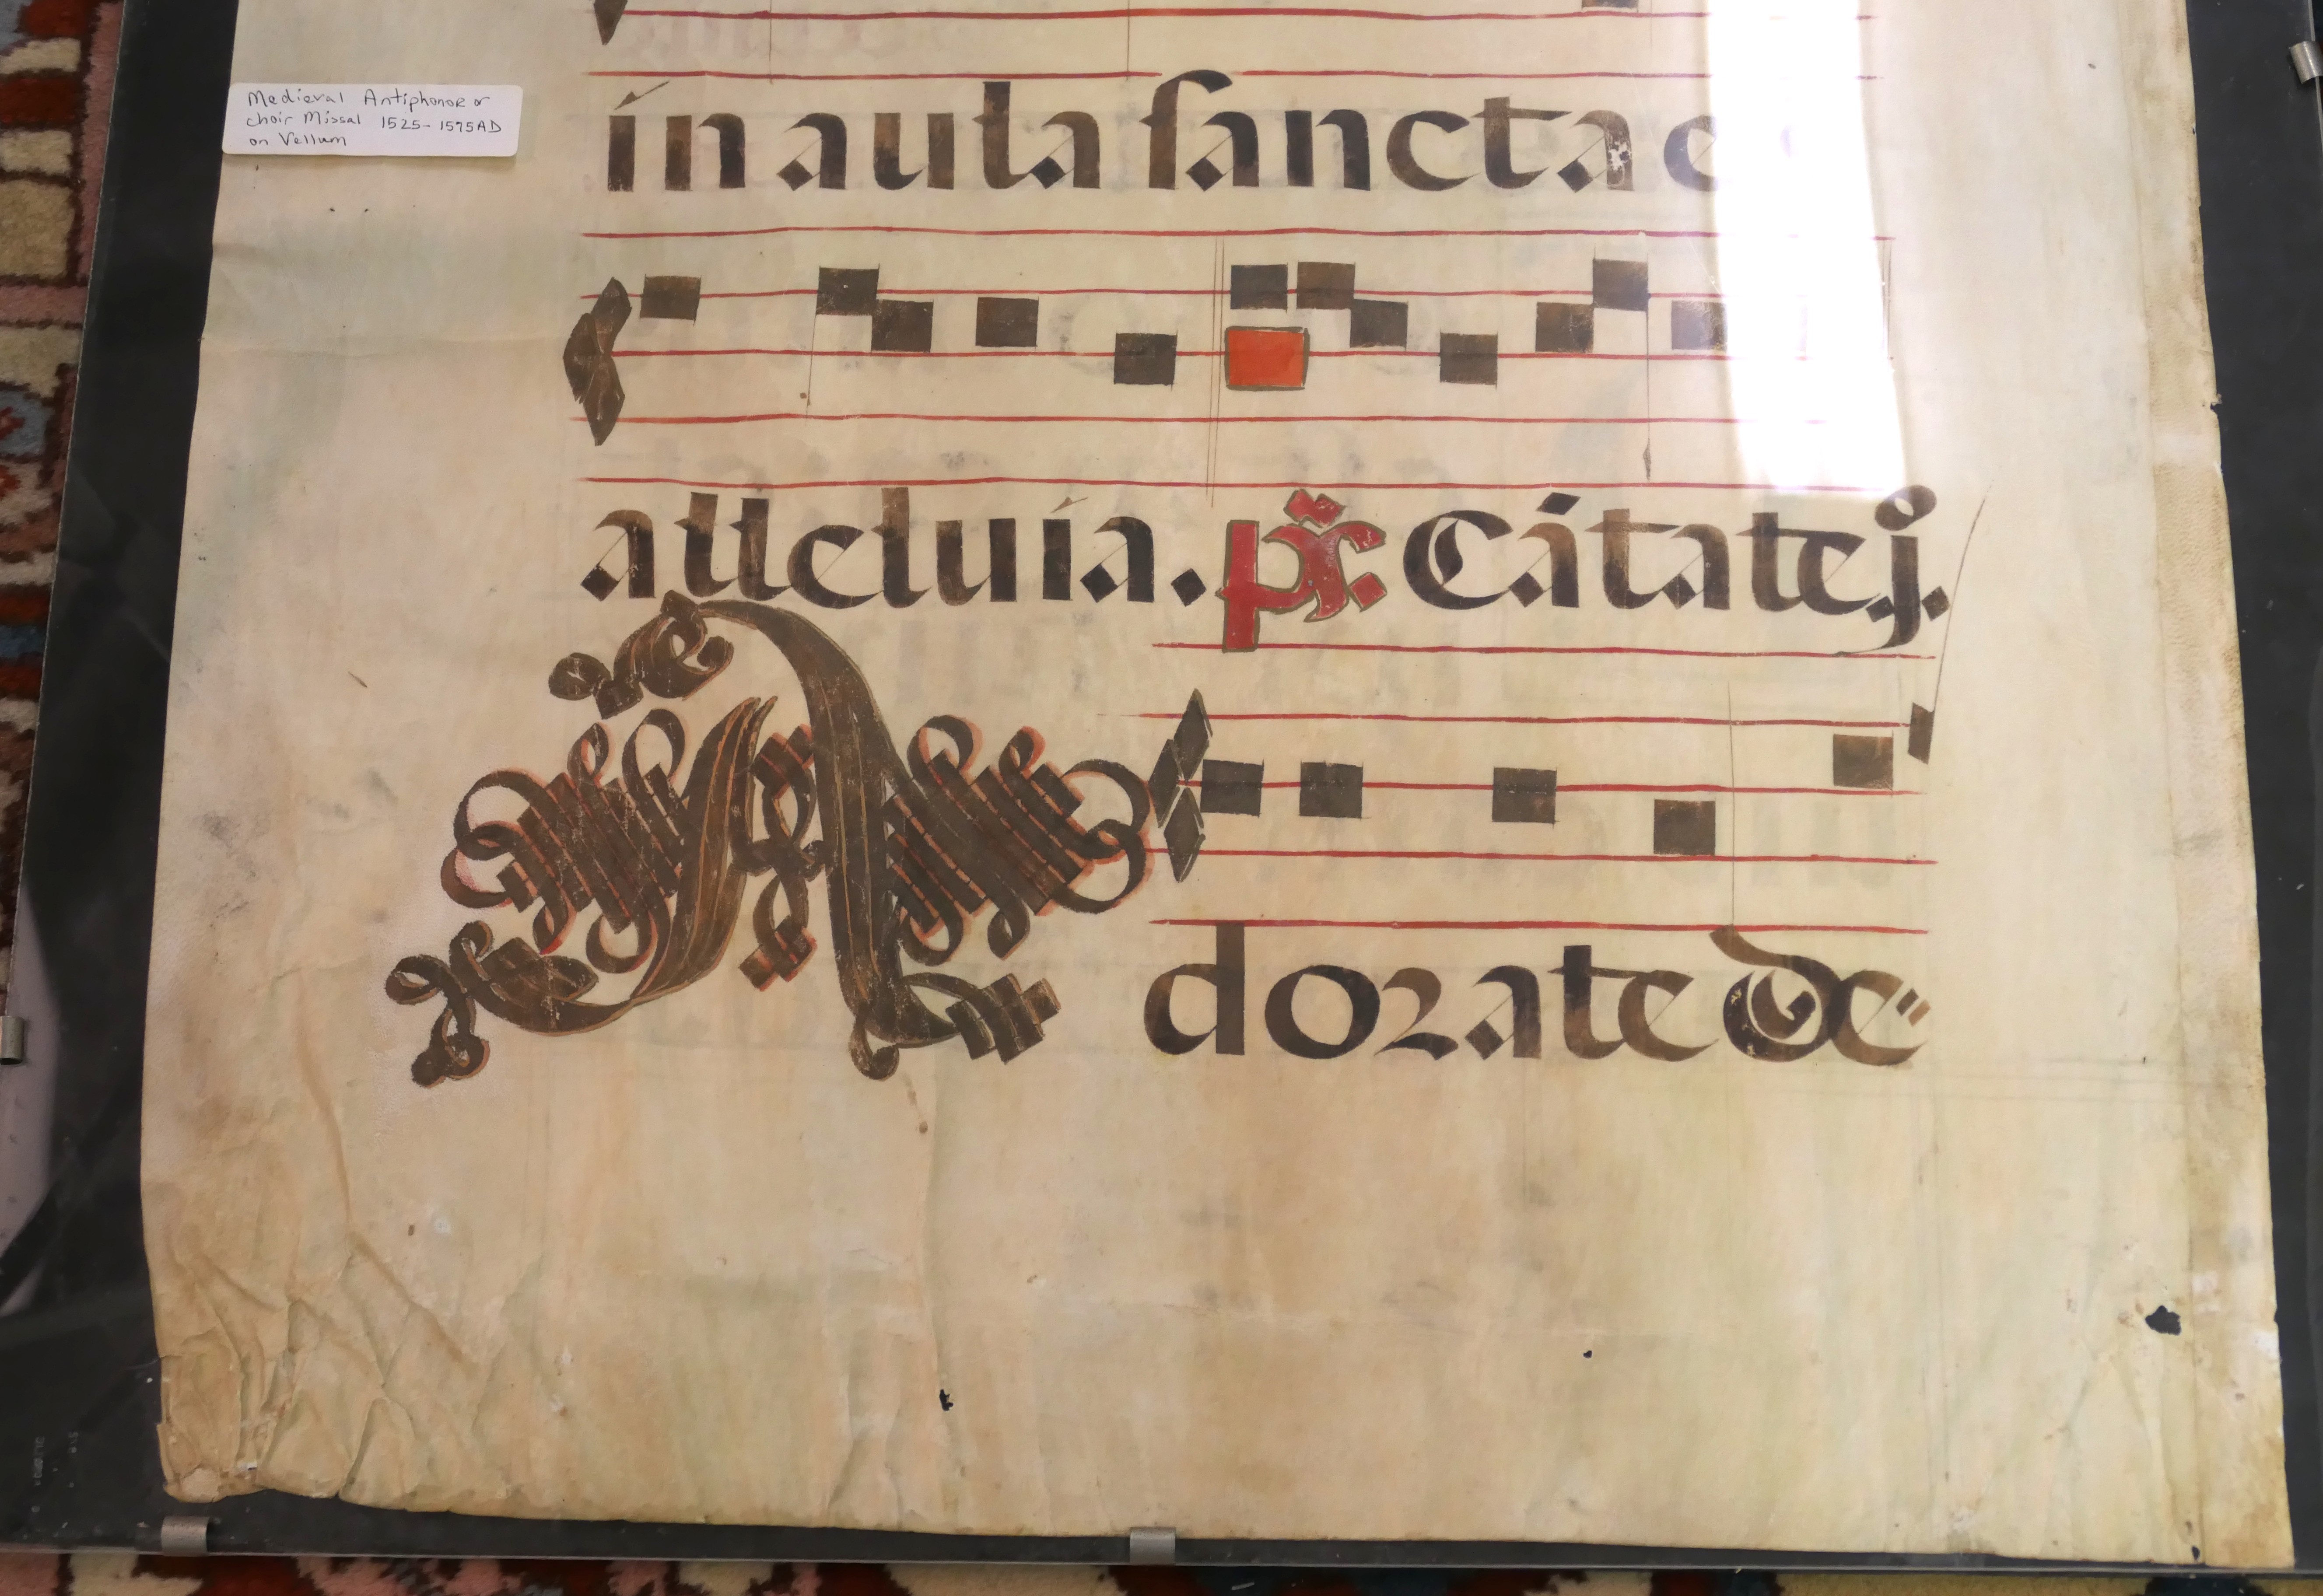 Medieval Antiphonor or
choir Missal 1525-1575AD
on Vellum
in aula sancta e
alleluia. p̃s. Cátate j.
Adorate de"